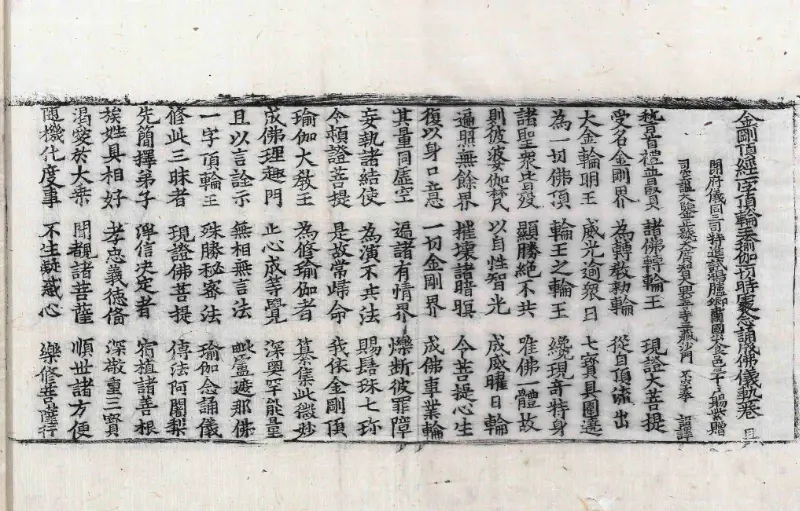 金剛頂經一字頂輪王瑜伽一切時處念誦成佛儀軌一卷 且
開府儀同三司特進試鴻臚卿肅國公食邑三千戶賜紫贈
司空謚大鑒正號大廣智大興善寺三藏沙門 不空奉 詔譯
稽首禮普賢 諸佛轉輪王 現證大菩提
受名金剛界 為轉教勑輪 從自頂流出
大金輪明王 威光逾眾日 七寶具圍遶
為一切佛頂 輪王之輪王 纔現奇特身
諸聖眾皆沒 顯勝絕不共 唯佛一體故
則彼婆伽梵 以自性智光 成威曜日輪
遍照無餘界 摧壞諸暗暝 令菩提心生
復以身口意 一切金剛界 成佛事業輪
其量同虛空 遍諸有情界 爍斷彼罪障
妄執諸結使 為演不共法 賜髻珠七珎
令頓證菩提 是故常歸命 我依金剛頂
瑜伽大教王 為修瑜伽者 纂集此微妙
成佛理趣門 止心成等覺 深奧罕能量
且以言詮示 無相無言法 毗盧遮那佛
一字頂輪王 殊勝秘密法 瑜伽念誦儀
修此三昧者 現證佛菩提 傳法阿闍梨
先簡擇弟子 淨信決定者 宿植諸善根
族姓具相好 孝忠義德脩 深敬重三寶
渴愛於大乘 聞覩諸菩薩 順世諸方便
隨機化度事 不生疑惑心 樂修菩薩行